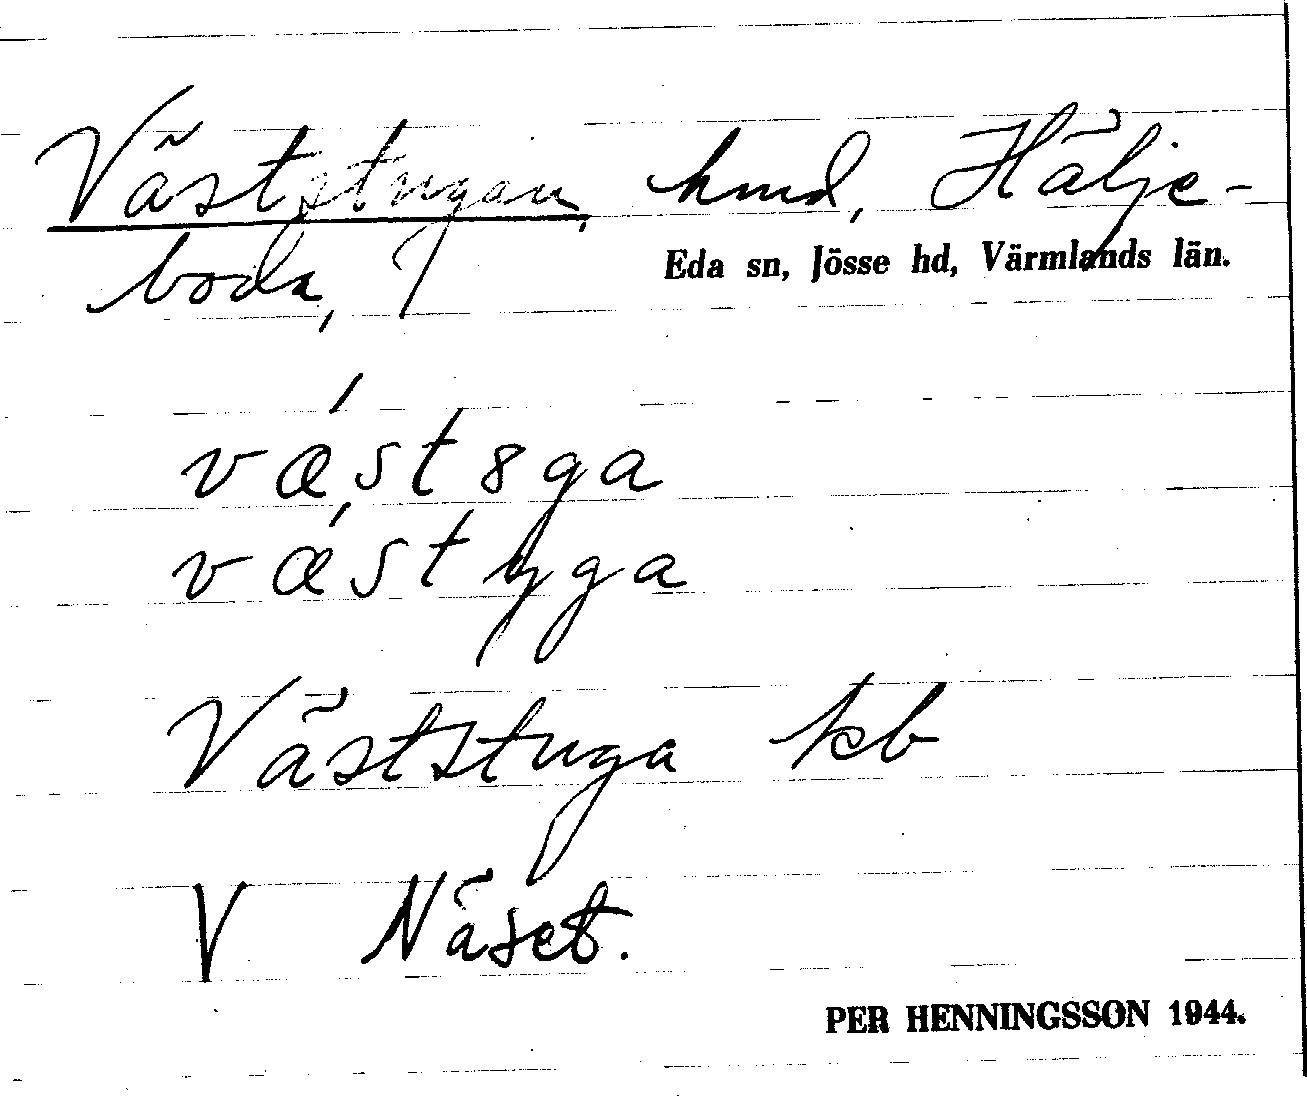 Väststugan, hmd, Hälje-
boda,
Eda sn, Jösse hd, Värmlands län.
væ´st8ga
væ´styga
Väststuga kb
V Näset.
PER HENNINGSSON 1944.